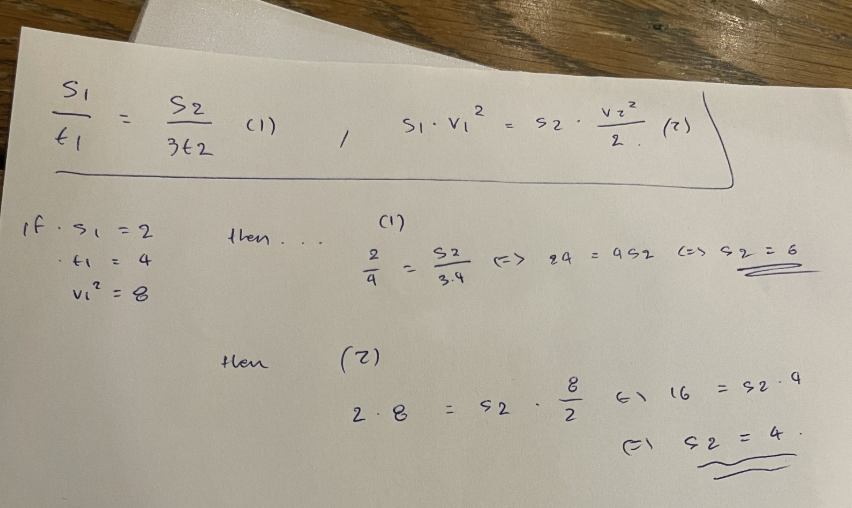 s1/t1 = s2/3t2 (1) , s1 · v1² = s2 · v2²/2 . (2)
if · s1 = 2 then . . . (1)
· t1 = 4 2/4 = s2/3.4 <=> 24 = 4s2 <=> s2 = 6
v1² = 8
then (2)
2 · 8 = s2 · 8/2 <=> 16 = s2 · 4
<=> s2 = 4 .